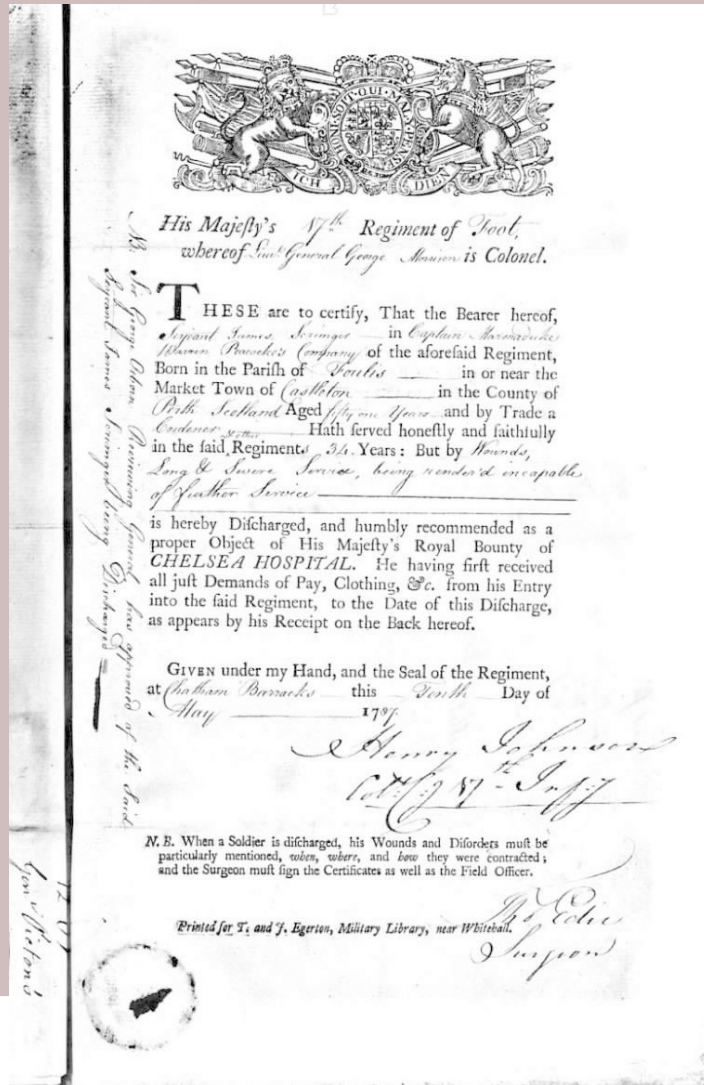 HONI SOIT QUI MAL Y PENSE
ICH DIEN
His Majeſty's 17th Regiment of Foot,
whereof Lieut. General George Morrison is Colonel.
THESE are to certify, That the Bearer hereof,
Serjeant James Scringer in Captain Marmaduke
Warren Peacocke's Company of the aforeſaid Regiment,
Born in the Pariſh of Foulis in or near the
Market Town of Castleton in the County of
Perth Scotland Aged fifty one Years and by Trade a
Cordener Hath ſerved honeſtly and faithfully
in the ſaid Regiments 34 Years: But by Wounds,
Long & Severe Service, being render'd incapable
of further Service
is hereby Diſcharged, and humbly recommended as a
proper Object of His Majeſty's Royal Bounty of
CHELSEA HOSPITAL. He having firſt received
all juſt Demands of Pay, Clothing, &c. from his Entry
into the ſaid Regiment, to the Date of this Diſcharge,
as appears by his Receipt on the Back hereof.
GIVEN under my Hand, and the Seal of the Regiment,
at Chatham Barracks this Tenth Day of
May 1787
Henry Johnson
17th Inf:y
N. B. When a Soldier is diſcharged, his Wounds and Diſorders muſt be
particularly mentioned, when, where, and how they were contracted;
and the Surgeon muſt ſign the Certificates as well as the Field Officer.
Edie
Surgeon
Printed for T. and J. Egerton, Military Library, near Whitehall.
NB. Sir George Osborn Reviewing General, has approved of the Said
Serjeant James Scringer being Discharged